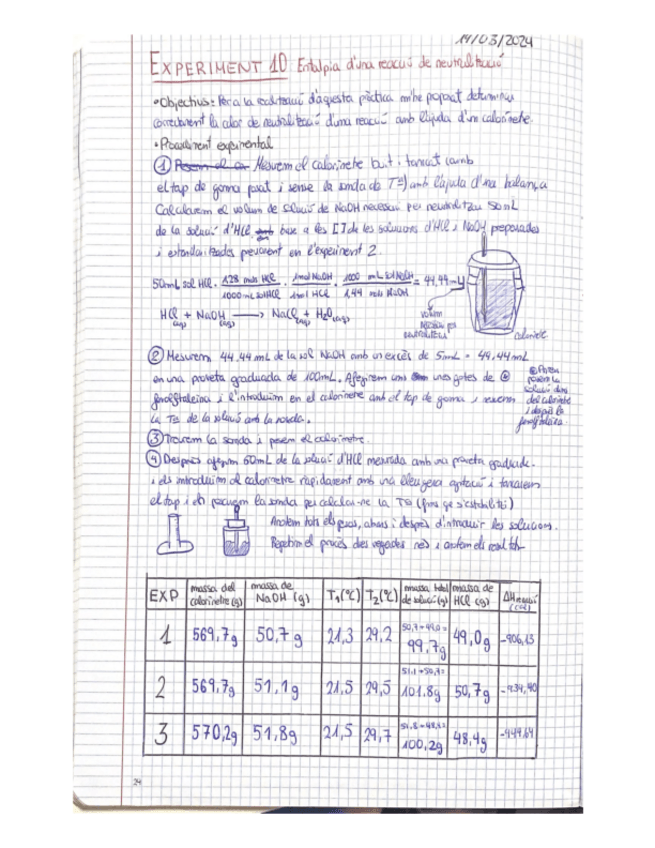 14/03/2024
EXPERIMENT 10 Entalpia d'una reacció de neutralització
• Objectius: Per a la realització d'aquesta pràctica m'he proposat determinar
correctament la calor de neutralització d'una reacció amb l'ajuda d'un calorímetre.
• Procediment experimental
① Mesurem el calorímetre buit i tancat (amb
el tap de goma posat i sense la sonda de Tª) amb l'ajuda d'una balança
Calcularem el volum de solució de NaOH necessari per neutralitzar 50 mL
de la solució d'HCl, base a les [] de les solucions d'HCl i NaOH preparades
i estandaritzades prèviament en l'experiment 2.
50mL sol HCl · 1,28 mols HCl / 1000mL sol HCl · 1mol NaOH / 1mol HCl · 1000 mL sol NaOH / 1,44 mols NaOH = 44,44 mL
volum
necessari per
neutralitzar
calorímetre
HCl(aq) + NaOH(aq) ⟶ NaCl(aq) + H₂O(aq)
② Mesurem 44,44 mL de la sol NaOH amb un excés de 5mL = 49,44 mL
en una proveta graduada de 100mL. Afegirem unes gotes de
fenolftaleïna i l'introduïm en el calorímetre amb el tap de goma i
la Tª de la solució amb la sonda.
posem la
solució dins
del calorímetre
i després la
fenolftaleïna
③ Traurem la sonda i pesem el calorímetre.
④ Després afegim 50mL de la solució d'HCl mesurada amb una proveta graduada.
i els introduïm al calorímetre ràpidament amb una lleugera agitació i tanquem
el tap i els posarem la sonda per calcular-ne la Tª (fins que s'estabilitzi)
Anotem tots els pesos, abans i després d'introduir les solucions.
Repetim el procés dues vegades més i anotem els resultats
EXP | massa del calorímetre (g) | massa de NaOH (g) | T₁(ºC) | T₂(ºC) | massa total de solució (g) | massa de HCl (g) | ΔH reacció (cal)
1 | 569,7g | 50,7g | 21,3 | 29,2 | 50,7+49,0= 99,7g | 49,0g | -906,13
2 | 569,7g | 51,1g | 21,5 | 29,5 | 51,1+50,7= 101,8g | 50,7g | -934,90
3 | 570,2g | 51,8g | 21,5 | 29,7 | 51,8+48,4= 100,2g | 48,4g | -944,64
24